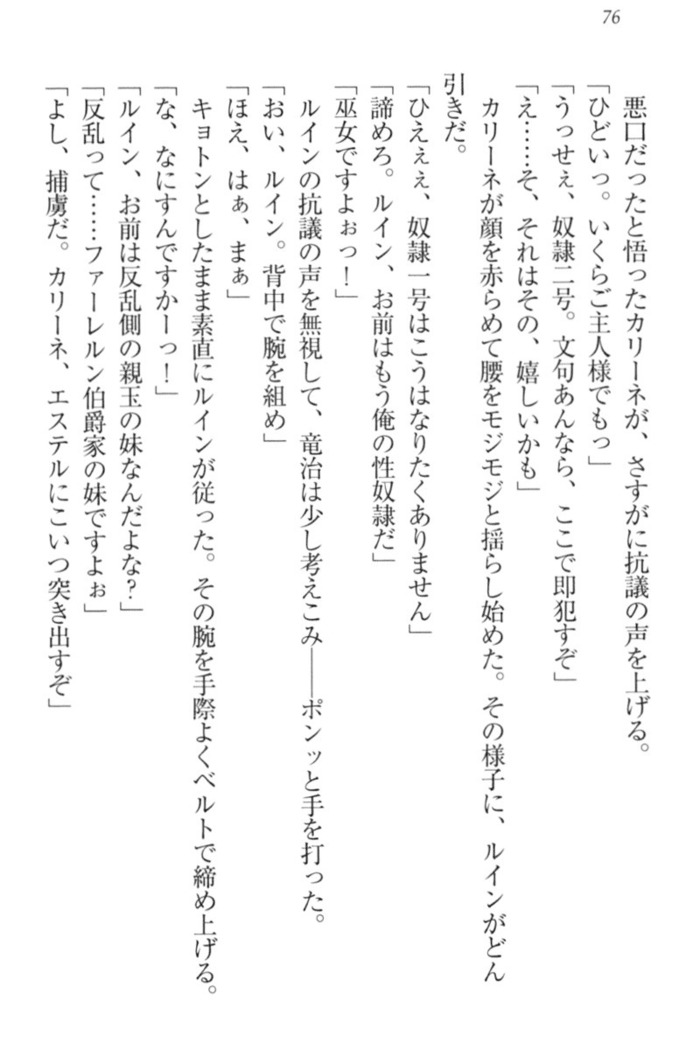 76
悪口だったと悟ったカリーネが、さすがに抗議の声を上げる。
「ひどいっ。いくらご主人様でもっ」
「うっせぇ、奴隷二号。文句あんなら、ここで即犯すぞ」
「え……そ、それはその、嬉しいかも」
カリーネが顔を赤らめて腰をモジモジと揺らし始めた。その様子に、ルインがどん
引きだ。
「ひえぇぇ、奴隷一号はこうはなりたくありません」
「諦めろ。ルイン、お前はもう俺の性奴隷だ」
「巫女ですよぉっ！」
ルインの抗議の声を無視して、竜治は少し考えこみ――ポンッと手を打った。
「おい、ルイン。背中で腕を組め」
「ほえ、はぁ、まぁ」
キョトンとしたまま素直にルインが従った。その腕を手際よくベルトで締め上げる。
「な、なにすんですかーっ！」
「ルイン、お前は反乱側の親玉の妹なんだよな？」
「反乱って……ファーレルン伯爵家の妹ですよぉ」
「よし、捕虜だ。カリーネ、エステルにこいつ突き出すぞ」